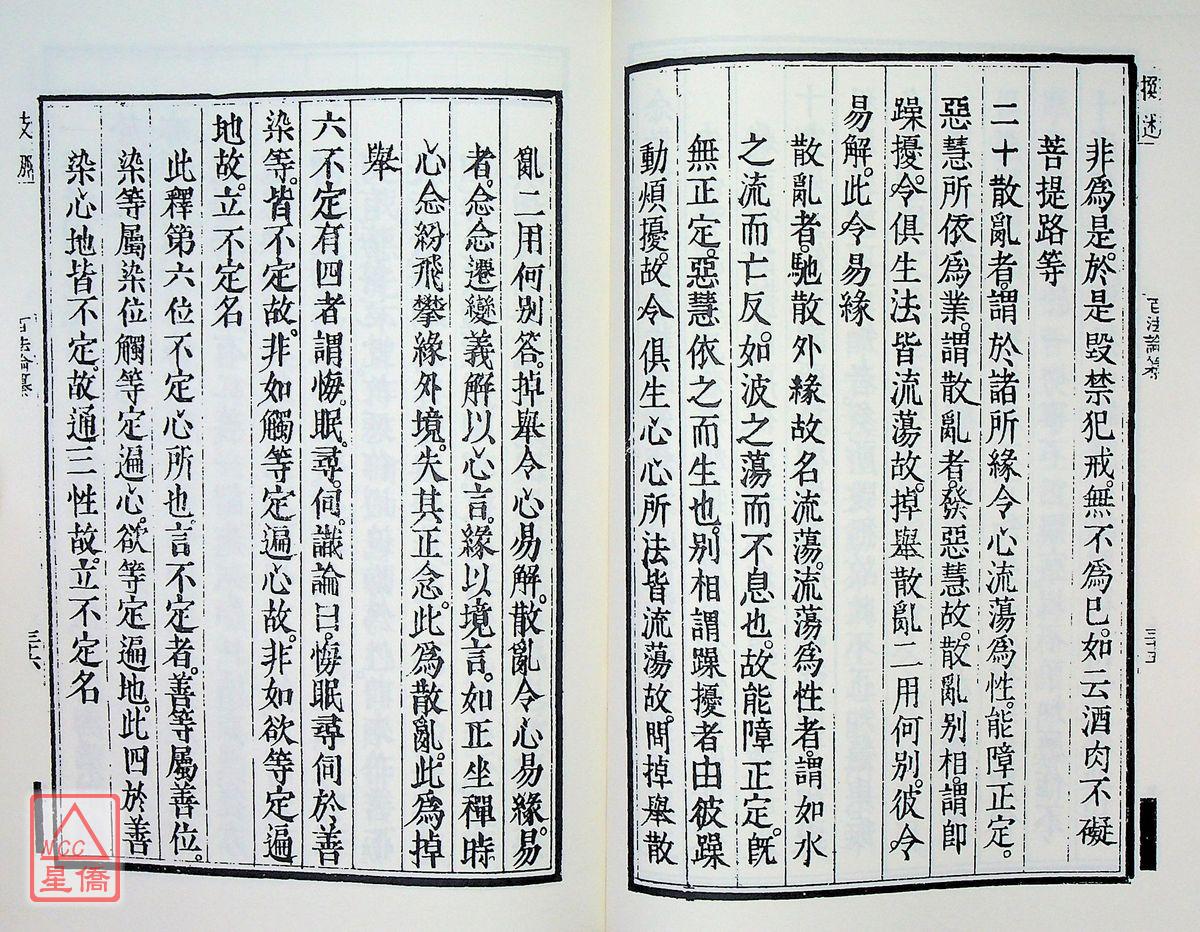 百法論纂
三十五
非爲是。於是毀禁犯戒。無不爲巳。如云酒肉不礙
菩提路等
二十散亂者。謂於諸所緣令心流蕩爲性。能障正定。
惡慧所依爲業。謂散亂者。發惡慧故。散亂別相。謂卽
躁擾。令俱生法皆流蕩故。掉舉散亂二用何別。彼令
易解。此令易緣
散亂者。馳散外緣故名流蕩。流蕩爲性者。謂如水
之流而亡反。如波之蕩而不息也。故能障正定。旣
無正定。惡慧依之而生也。別相謂躁擾者由彼躁
動煩擾。故令俱生心心所法皆流蕩故。問掉舉散
亂二用何別答。掉舉令心易解。散亂令心易緣。易
者。念念遷變義解以心言。緣以境言。如正坐禪時
心念紛飛攀緣外境。失其正念。此爲散亂。此爲掉
舉
六不定有四者謂悔。眠。尋。伺。識論曰。悔眠尋伺於善
染等。皆不定故。非如觸等定遍心故。非如欲等定遍
地故。立不定名
此釋第六位不定心所也。言不定者。善等屬善位。
染等屬染位觸等定遍心。欲等定遍地。此四於善
染心地皆不定。故通三性故。立不定名
百法論纂
三十六
WCC
星僑